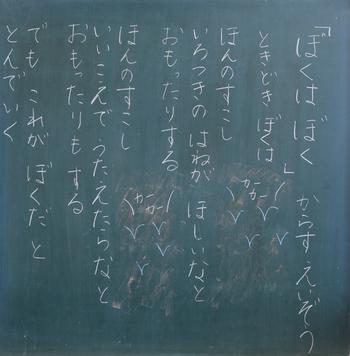 「ぼくはぼく」 からすえいぞう
ときどきぼくは
ほんのすこし
いろつきの はねが ほしいなと
おもったりする
ほんのすこし
いいこえで うたえたらなと
おもったりもする
でも これが ぼくだ と
とんでいく
(かーかー)
(かーかー)